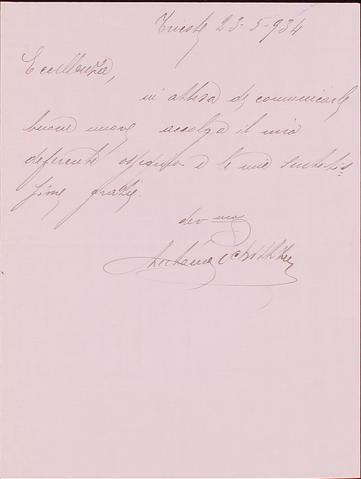 Trieste 23-5-934
Eccellenza,
in attesa di comunicarle
buone nuove accolga il mio
deferente ossequio e le mie sentitis=
sime grazie
dev.mo